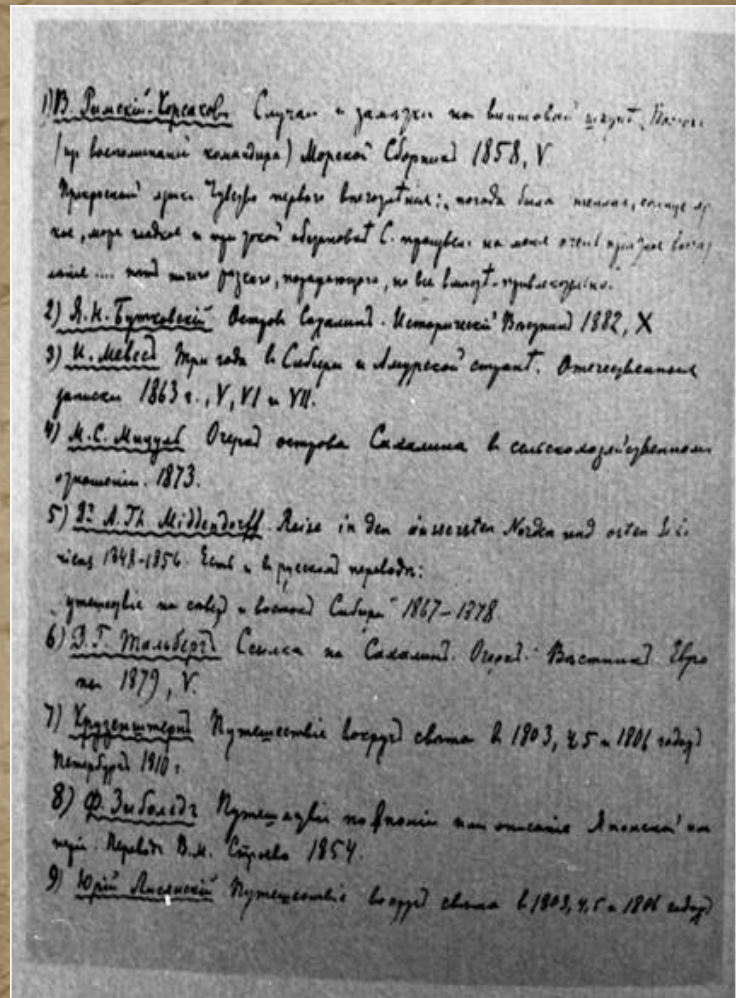 1) В. Римскій-Корсаковъ Случаи и замѣтки на винтовой шкунѣ
(изъ воспоминаній командира) Морской Сборникъ 1858, V.
первого впечатлѣнія: погода была теплая, солнце
море гладкое и при этой обстановкѣ С. на меня очень
ничего рѣзкого, поражающего, но все
2) Я. Н. Бутковскій Островъ Сахалинъ. Историческій Вѣстникъ 1882, X
3) И. Мевесъ Три года въ Сибири и Амурской странѣ. Отечественныя
записки 1863 г., V, VI и VII.
4) М. С. Мицуль Очеркъ острова Сахалина въ сельскохозяйственномъ
отношеніи. 1873.
5) Dr A. Th. Middendorff. Reise in den äussersten Norden und osten Sibi
riens 1848-1856. Есть и въ русскомъ переводѣ:
путешествіе на сѣверъ и востокъ Сибири" 1867-1878.
6) Д. Г. Тальбергъ Ссылка на Сахалинъ. Очеркъ. Вѣстникъ Евро
пы 1879, V.
7) Крузенштернъ Путешествіе вокругъ свѣта въ 1803, 4, 5 и 1806 годахъ
Петербургъ 1810 г.
8) Ф. Зибольдъ Путешествіе по Японіи или описаніе Японской им
періи. Переводъ В. М. Строева 1854.
9) Юрій Лисянскій Путешествіе вокругъ свѣта въ 1803, 4, 5 и 1806 годахъ